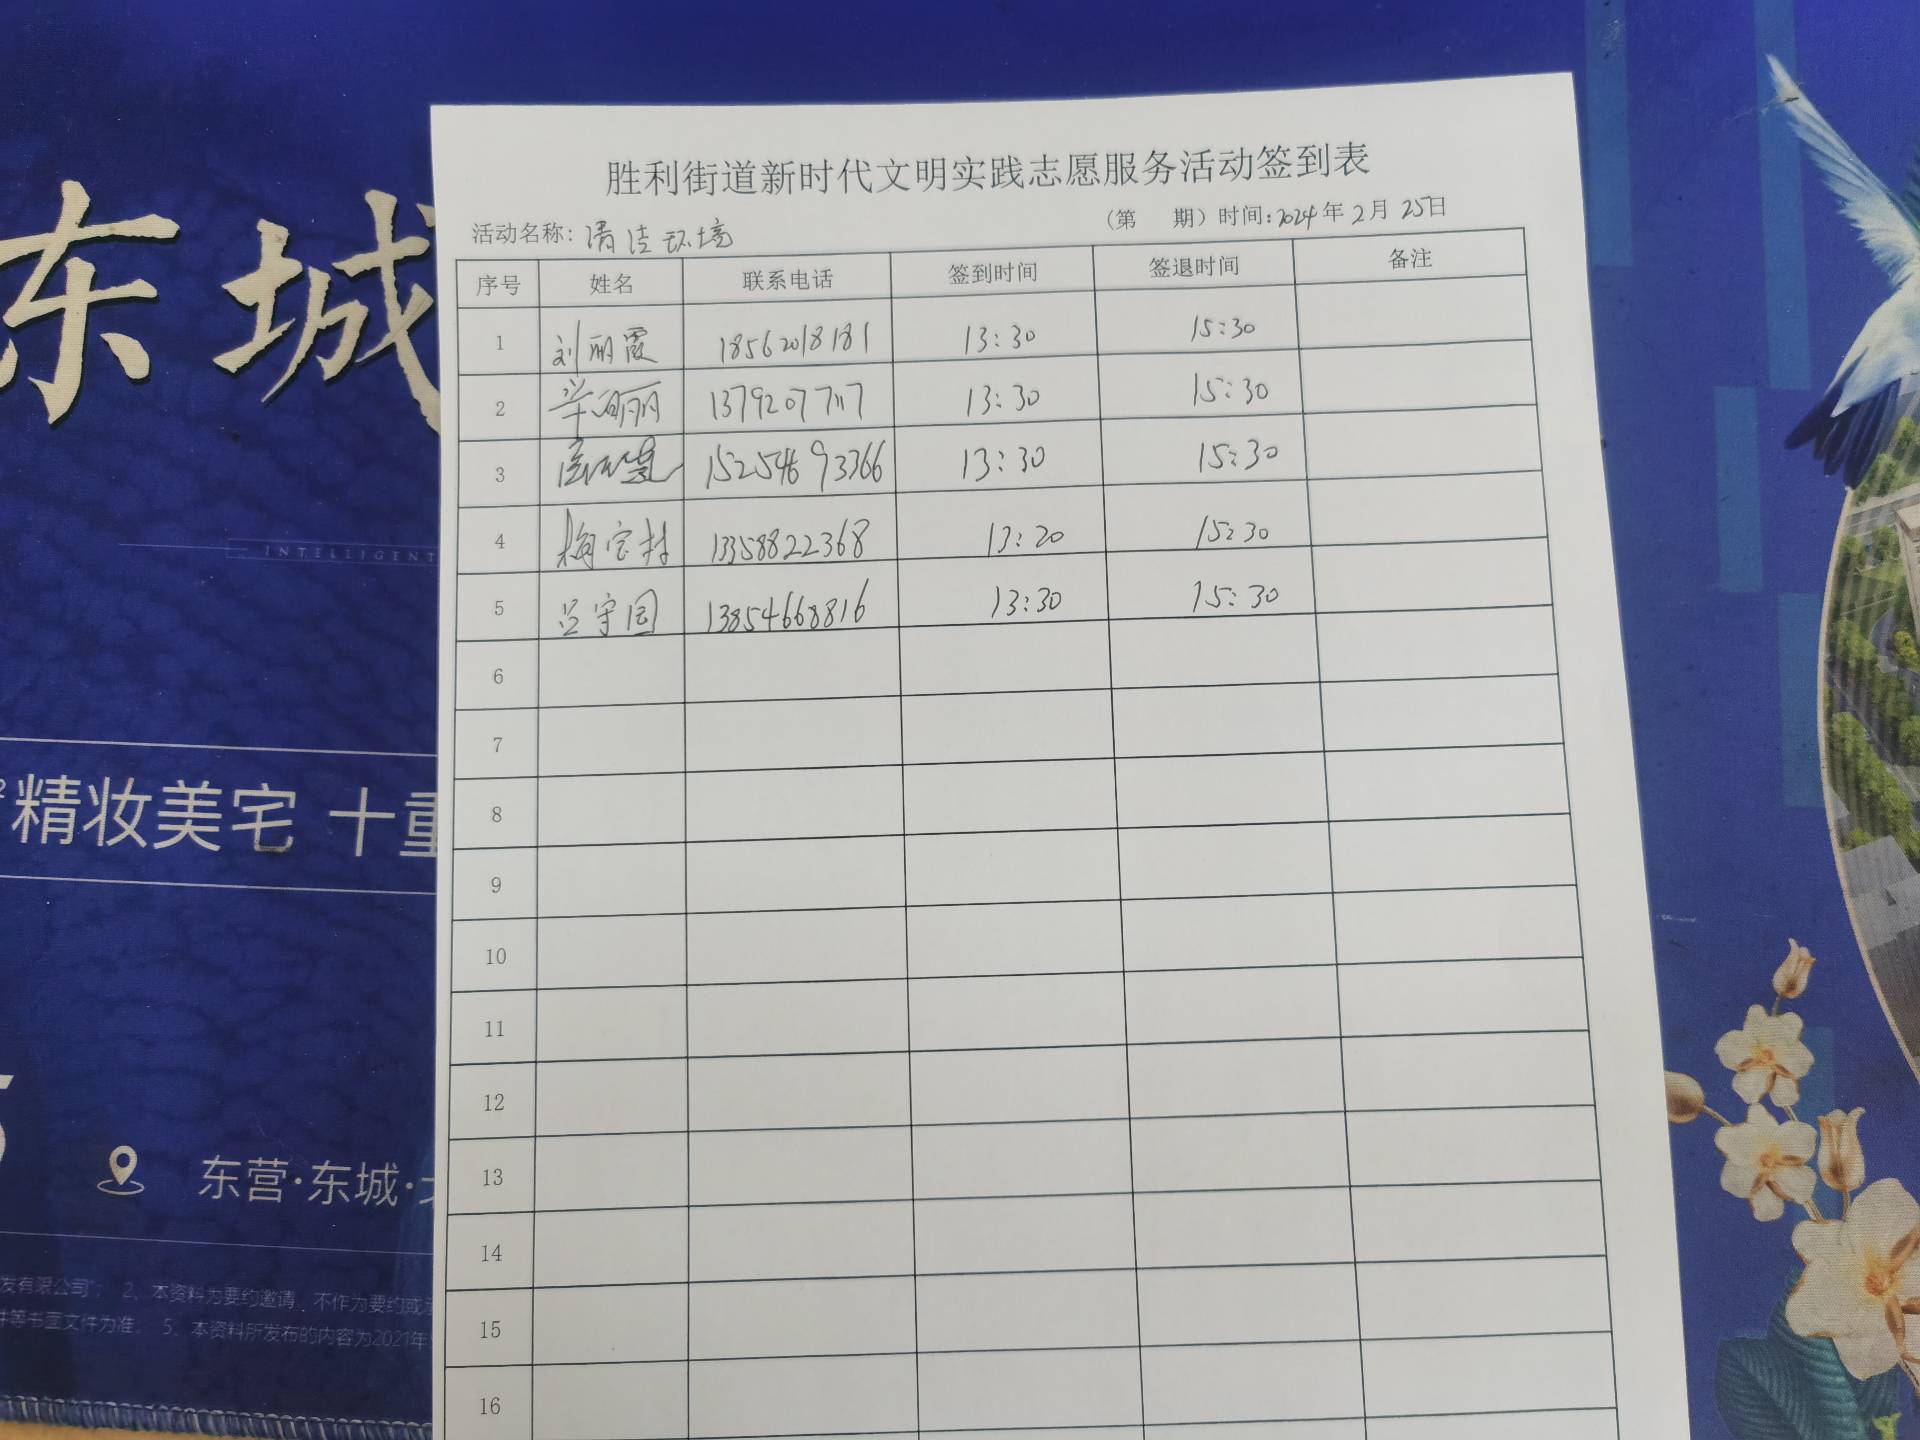 胜利街道新时代文明实践志愿服务活动签到表
活动名称：清洁环境 （第 期）时间：2024年2月25日
序号 姓名 联系电话 签到时间 签退时间 备注
1 刘丽霞 18562018181 13:30 15:30
2 丽 13:30 15:30
3 15254693766 13:30 15:30
4 梅宝林 13358822368 13:20 15:30
5 吕守国 13854668816 13:30 15:30
6
7
8
9
10
11
12
13
14
15
16
东城
INTELLIGENT
精妆美宅 十重
东营·东城·
发有限公司”； 2、本资料为要约邀请，不作为要约或
件等书面文件为准。 5、本资料所发布的内容为2021年